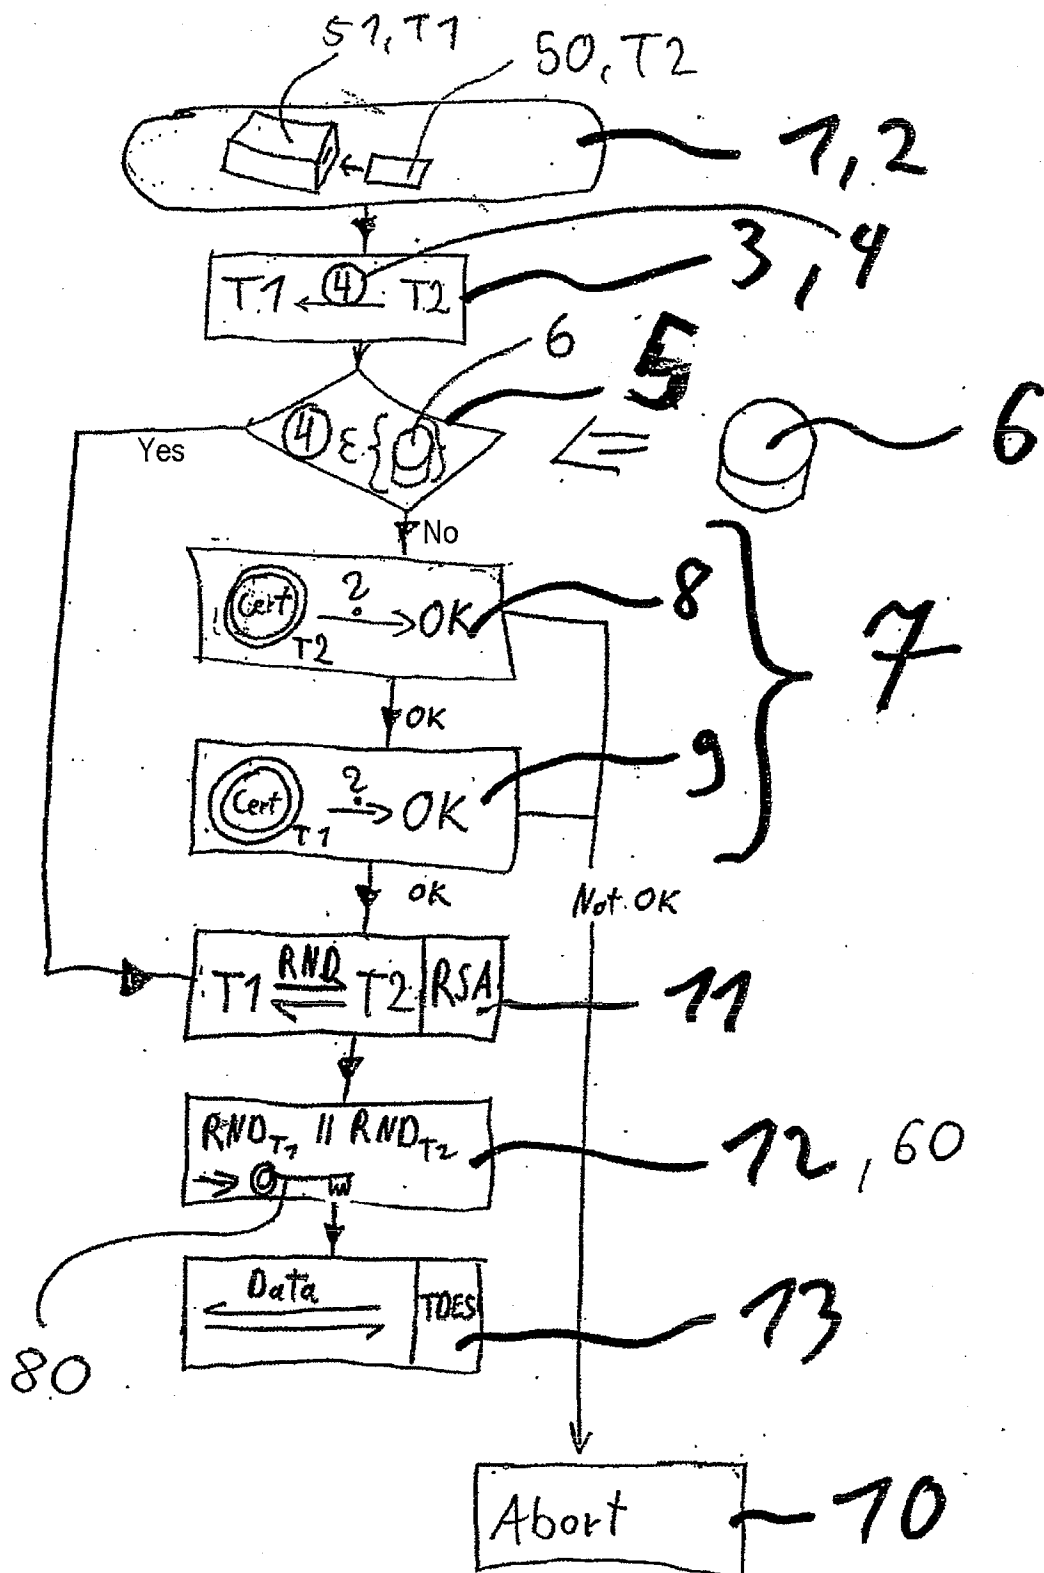 51, T1
50, T2
1, 2
3, 4
T1 4 T2
6
5
4 ε { }
6
Yes
No
Cert T2 ? OK
8
7
OK
Cert T1 ? OK
9
OK
Not OK
T1 RND T2 RSA
11
RND T1 || RND T2
12, 60
Data TDES
13
80
Abort
10